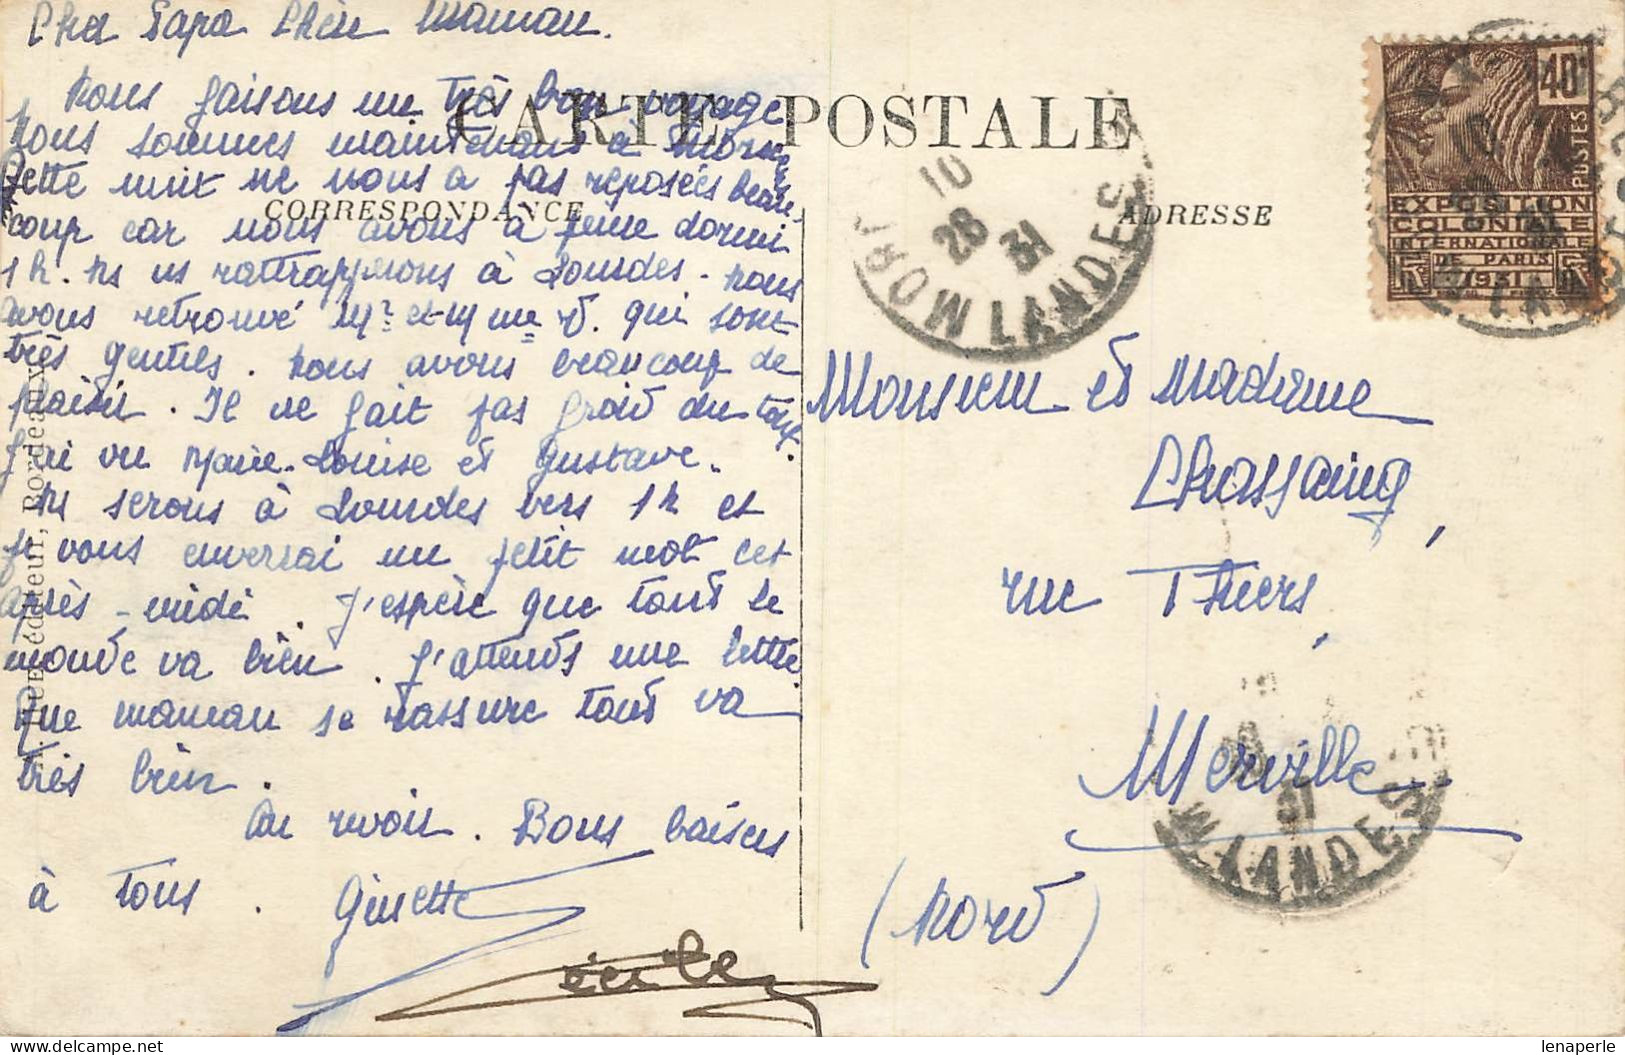 Cher Papa Chère Maman.
Nous faisons un très bon voyage
Nous sommes maintenant à
Cette nuit ne nous a pas reposées beau-
coup car nous avons à peine dormi
1 h. Ns ns rattrapperons à Lourdes. Nous
avons retrouvé Mr et Mme V. qui sont
très gentils. Nous avons beaucoup de
plaisir. Il ne fait pas froid du tout.
J'ai vu Marie-Louise et Gustave.
Ns serons à Lourdes vers 1 h et
je vous enverrai un petit mot cet
après-midi. J'espère que tout le
monde va bien. J'attends une lettre.
Que maman se rassure tout va
très bien.
Au revoir. Bons baisers
à tous. Ginette
Cécile
CARTE POSTALE
CORRESPONDANCE
ADRESSE
éditeur, Bordeaux
Monsieur et Madame
Chassaing,
rue Thiers,
Merville
(Nord)
40c
POSTES
EXPOSITION
COLONIALE
INTERNATIONALE
DE PARIS
1931
10
28
31
LANDES
31
LANDES
delcampe.net
lenaperle